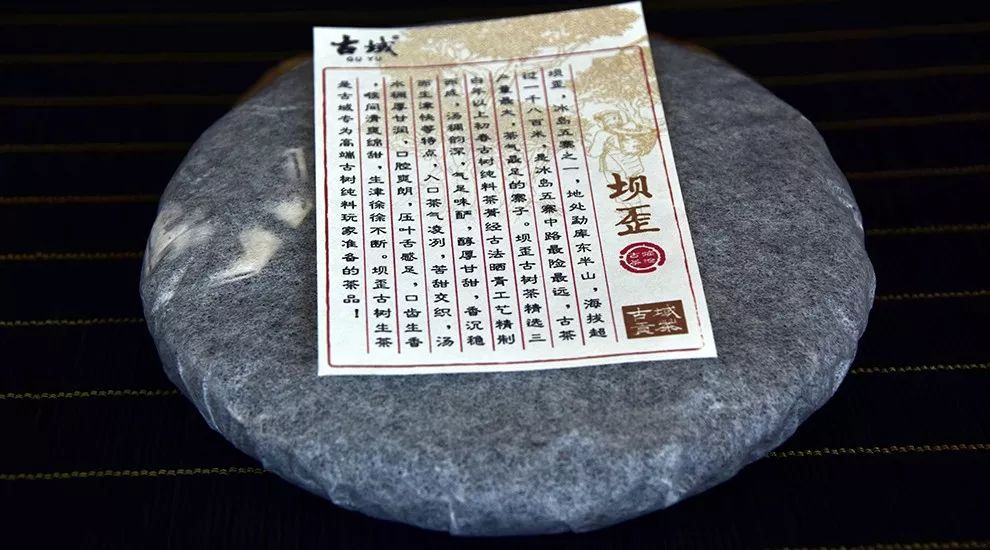 古域®
GU YU
坝歪
坝歪，冰岛五寨之一，地处勐库东半山，海拔超
过一千八百米，是冰岛五寨中路最险最远，古茶
产量最大，茶气最足的寨子。坝歪古树茶精选三
百年以上初春古树纯料茶菁经古法晒青工艺精制
而成，汤稠韵深，气足味酽，醇厚甘甜，香沉稳
而生津快等特点，入口茶气凌冽，苦甜交织，汤
水稠厚甘润，口腔爽朗，压叶舌感足，口齿生香
，喉间清爽绵甜，生津徐徐不断。坝歪古树生茶
是古域专为高端古树纯料玩家准备的茶品！
古域
贡茶